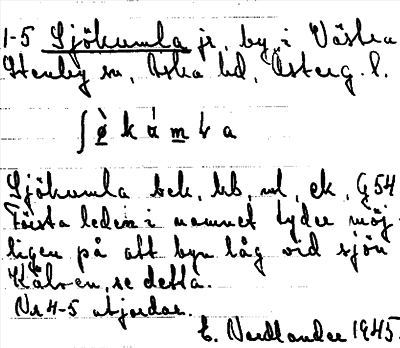 1-5 Sjökumla jr, by i Västra
Stenby sn, Aska hd, Österg. l.
Sjökumla bek, hb, ml, ek, G54
Första leden i namnet tyder möj-
ligen på att byn låg vid sjön
Kälven, se detta.
Nr 4-5 utjordar.
E. Nordlander 1945.